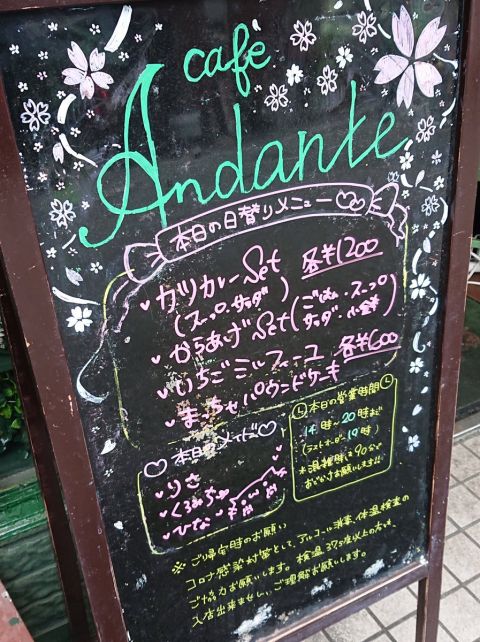 cafe
Andante
本日の日替りメニュー
カツカレーSet 各¥1200
(スープ・サラダ)
からあげSet(ごはん・スープ
サラダ・小鉢)
いちごミルフィーユ 各¥600
まっちゃパウンドケーキ
本日のメイド
りさ
くるみ
ひな
本日の営業時間
14時〜20時まで
(ラストオーダー19時)
*混雑時は90分で
おかけお願いします!!
※ご帰宅時のお願い
コロナ感染対策として、アルコール消毒、体温検査の
ご協力お願いします。検温37.5度以上の方は、
入店出来ません。ご理解お願いします。